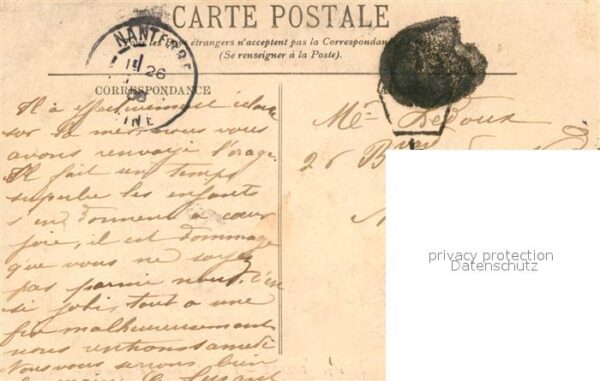 CARTE POSTALE
étrangers n'acceptent pas la Correspondan
(Se renseigner à la Poste).
NANTERRE
26
08
INE
CORRESPONDANCE
Il a effectivement éclaté
sur la mer, nous vous
avons renvoyé l'orage.
Il fait un temps
superbe les enfants
s'en donnent à cœur
joie, il est dommage
que vous ne soyez
pas parmi nous, c'est
si joli, tout a une
fin malheureusement
nous rentrons samedi
Nous vous serrons bien
la main
Me Ledoux
26 B
privacy protection
Datenschutz